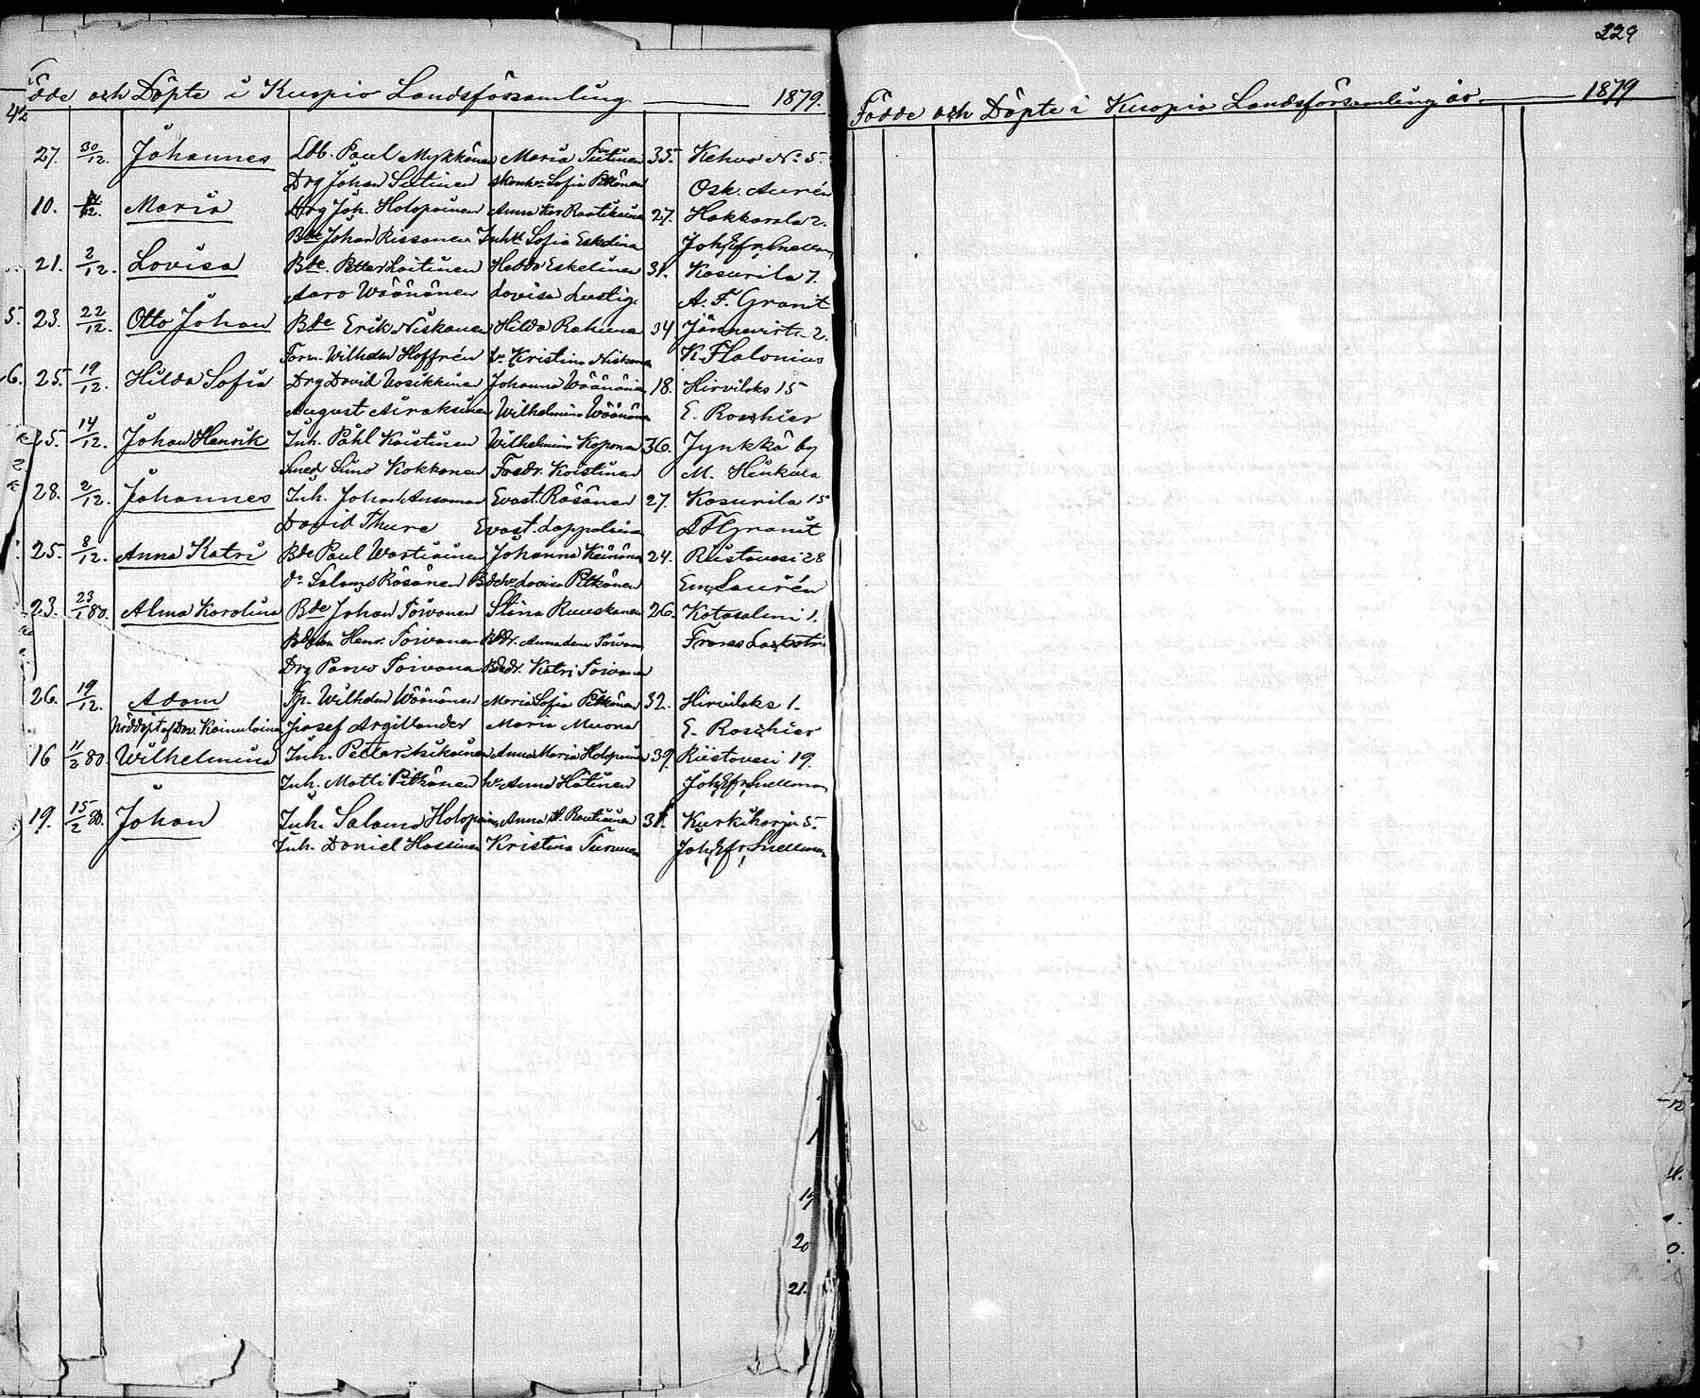 Födde och Döpte i Kuopio Landsförsamling 1879.
27. 30/12. Johannes Ldb. Paul Mykkänen Maria Tiitinen 35. Kehvo No 5.
Drg Johan Sutinen Sofia Pitkänen Osk. Aurén
10. 12. Maria Drg Joh. Holopainen Anna Kar Raatikainen 27. Hakkarala 2.
Bde Johan Rissanen Sofia Eskelina Joh. Efr. Snellman
21. 2/12. Lovisa Bde. Petter Laitinen Hedda Eskelinen 31. Kasurila 7.
Aaro Wäänänen Lovisa Lustig. A. F. Granit
5. 23. 22/12. Otto Johan Bde Erik Niskanen Hilda Rahuna 34 Jännevirta 2.
Wilhelm Hoffrén Kristina Niskanen K. F. Calonius
6. 25. 19/12. Hilda Sofia Drg David Wosikkina Johanna Wäänänen 18. Hirvilaks 15
August Airaksinen Wilhelmina Wäänänen E. Roschier
25. 14/12. Johan Henrik Inh. Påhl Koistinen Wilhelmina Koponen 36. Jynkkä by
Smed Simo Kokkonen Koistinen M. Hiukula
28. 2/12. Johannes Inh. Johan Ansamaa Evast. Räsänen 27. Kasurila 15
David Thure Evast. Lappalaina A F Granit
25. 8/12. Anna Katri Bde Paul Wartiainen Johanna Keinänen 24. Riistavesi 28
do Salomo Räsänen Lovisa Pitkänen Em. Laurén
23. 23/1 80. Alma Karolina Bde Johan Toivanen Stina Ruuskanen 26. Kotasalmi 1.
Henr. Toivanen Toivanen Frans
Drg Paavo Toivanen Katri Toivanen
26. 19/12. Adam Tp. Wilhelm Wäänänen Maria Sofia Pitkänen 32. Hirvilaks 1.
Nöddöpt af Dav. Kainulainen Josef Argillander Maria Muona E. Roschier
16 11/2 80. Wilhelmina Inh. Petter Anna Maria Holopainen 39. Riistavesi 19.
Inh. Matti Pitkänen hu Anna Hätinen Joh. Efr. Snellman
19. 15/2 80. Johan Inh. Salomo Holopainen Anna Rautiainen 31. Kurkiharju 5.
Inh. Daniel Hassinen Kristina Turunen Joh. Efr. Snellman
19
20
21.
229
Födde och Döpte i Kuopio Landsförsamling år 1879